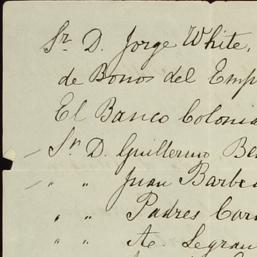 Sr. D. Jorge White,
de Bonos del Emp
El Banco Colonia
Sr. D. Guillermo Be
" " Juan Barbe
" " Padres Car
" " A. Legran